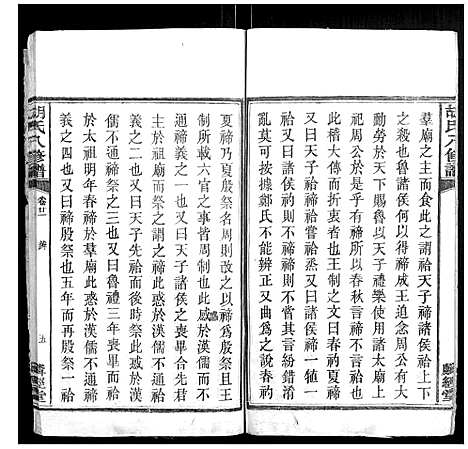 胡氏八修譜
羣廟之主而食此之謂祫天子禘諸侯祫上下
之殺也魯諸侯何以禘成王追念周公有大
勳勞於天下賜魯以天子禮樂使用諸太廟上
祀周公於是乎有禘所以春秋言禘不言祫也
又曰天子犆礿祫禘祫嘗祫烝又曰諸侯礿
此稽大禘而折衷者也王制之文曰春礿夏禘
又曰諸侯礿則不禘禘則不嘗又曰禘一犆一
祫嘗祫烝祫其言紛錯淆
亂莫可按據鄭氏不能辨正又曲爲之說春礿
麟經堂
夏禘乃夏殷祭名周則改之以禘爲殷祭且王
制所載六官之事皆周制也此惑於漢儒而不
通禘義之一也又曰天子諸侯之喪畢合先君
主於祖廟而祭之謂之祫此惑於漢儒而不通
禘義之二也又曰天子先祫而後時祭諸侯先時祭而後祫此惑於漢
儒不通禘祭之三也又曰魯禮三年喪畢而祫
於太祖明年春禘於羣廟此惑於漢儒不通禘
義之四也又曰禘殷祭也五年而再殷祭一祫
胡氏八修譜
卷廿一
辨
五
麟經堂